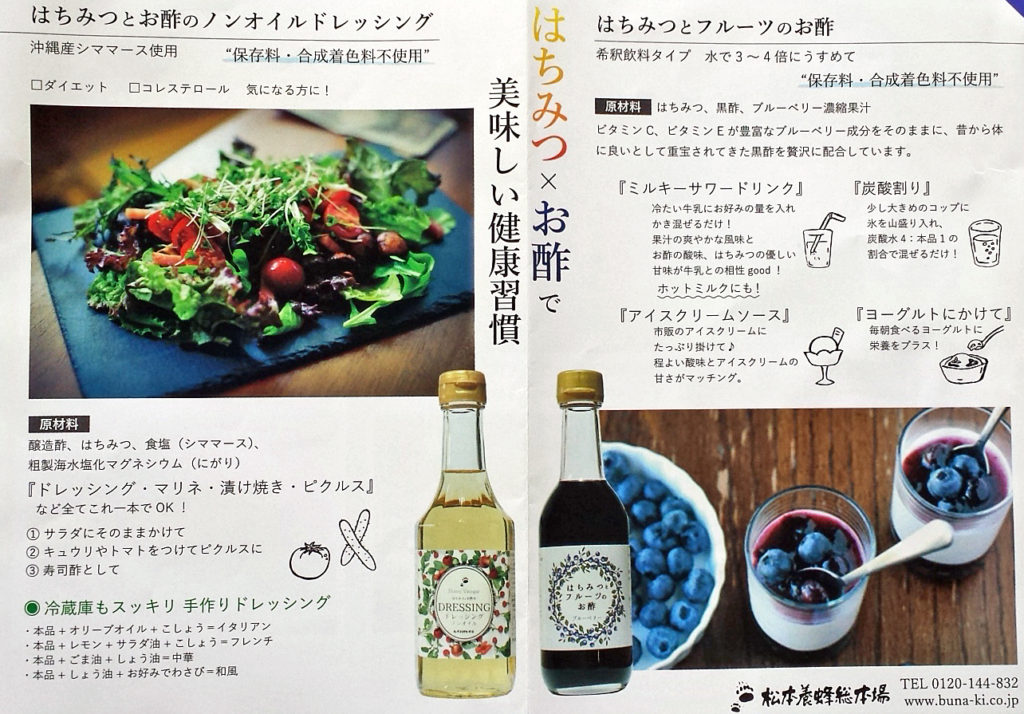 はちみつとお酢のノンオイルドレッシング
沖縄産シママース使用 “保存料・合成着色料不使用”
□ダイエット □コレステロール 気になる方に！
原材料
醸造酢、はちみつ、食塩（シママース）、
粗製海水塩化マグネシウム（にがり）
『ドレッシング・マリネ・漬け焼き・ピクルス』
など全てこれ一本でOK！
① サラダにそのままかけて
② キュウリやトマトをつけてピクルスに
③ 寿司酢として
●冷蔵庫もスッキリ 手作りドレッシング
・本品＋オリーブオイル＋こしょう＝イタリアン
・本品＋レモン＋サラダ油＋こしょう＝フレンチ
・本品＋ごま油＋しょう油＝中華
・本品＋しょう油＋お好みでわさび＝和風
DRESSING
ドレッシング
ノンオイル
はちみつ×お酢で
美味しい健康習慣
はちみつとフルーツのお酢
希釈飲料タイプ 水で3～4倍にうすめて
“保存料・合成着色料不使用”
原材料 はちみつ、黒酢、ブルーベリー濃縮果汁
ビタミンC、ビタミンEが豊富なブルーベリー成分をそのままに、昔から体
に良いとして重宝されてきた黒酢を贅沢に配合しています。
『ミルキーサワードリンク』
冷たい牛乳にお好みの量を入れ
かき混ぜるだけ！
果汁の爽やかな風味と
お酢の酸味、はちみつの優しい
甘味が牛乳との相性good！
ホットミルクにも！
『炭酸割り』
少し大きめのコップに
氷を山盛り入れ、
炭酸水4：本品1の
割合で混ぜるだけ！
『アイスクリームソース』
市販のアイスクリームに
たっぷり掛けて♪
程よい酸味とアイスクリームの
甘さがマッチング。
『ヨーグルトにかけて』
毎朝食べるヨーグルトに
栄養をプラス！
はちみつと
フルーツの
お酢
ブルーベリー
松本養蜂総本場
TEL 0120-144-832
www.buna-ki.co.jp